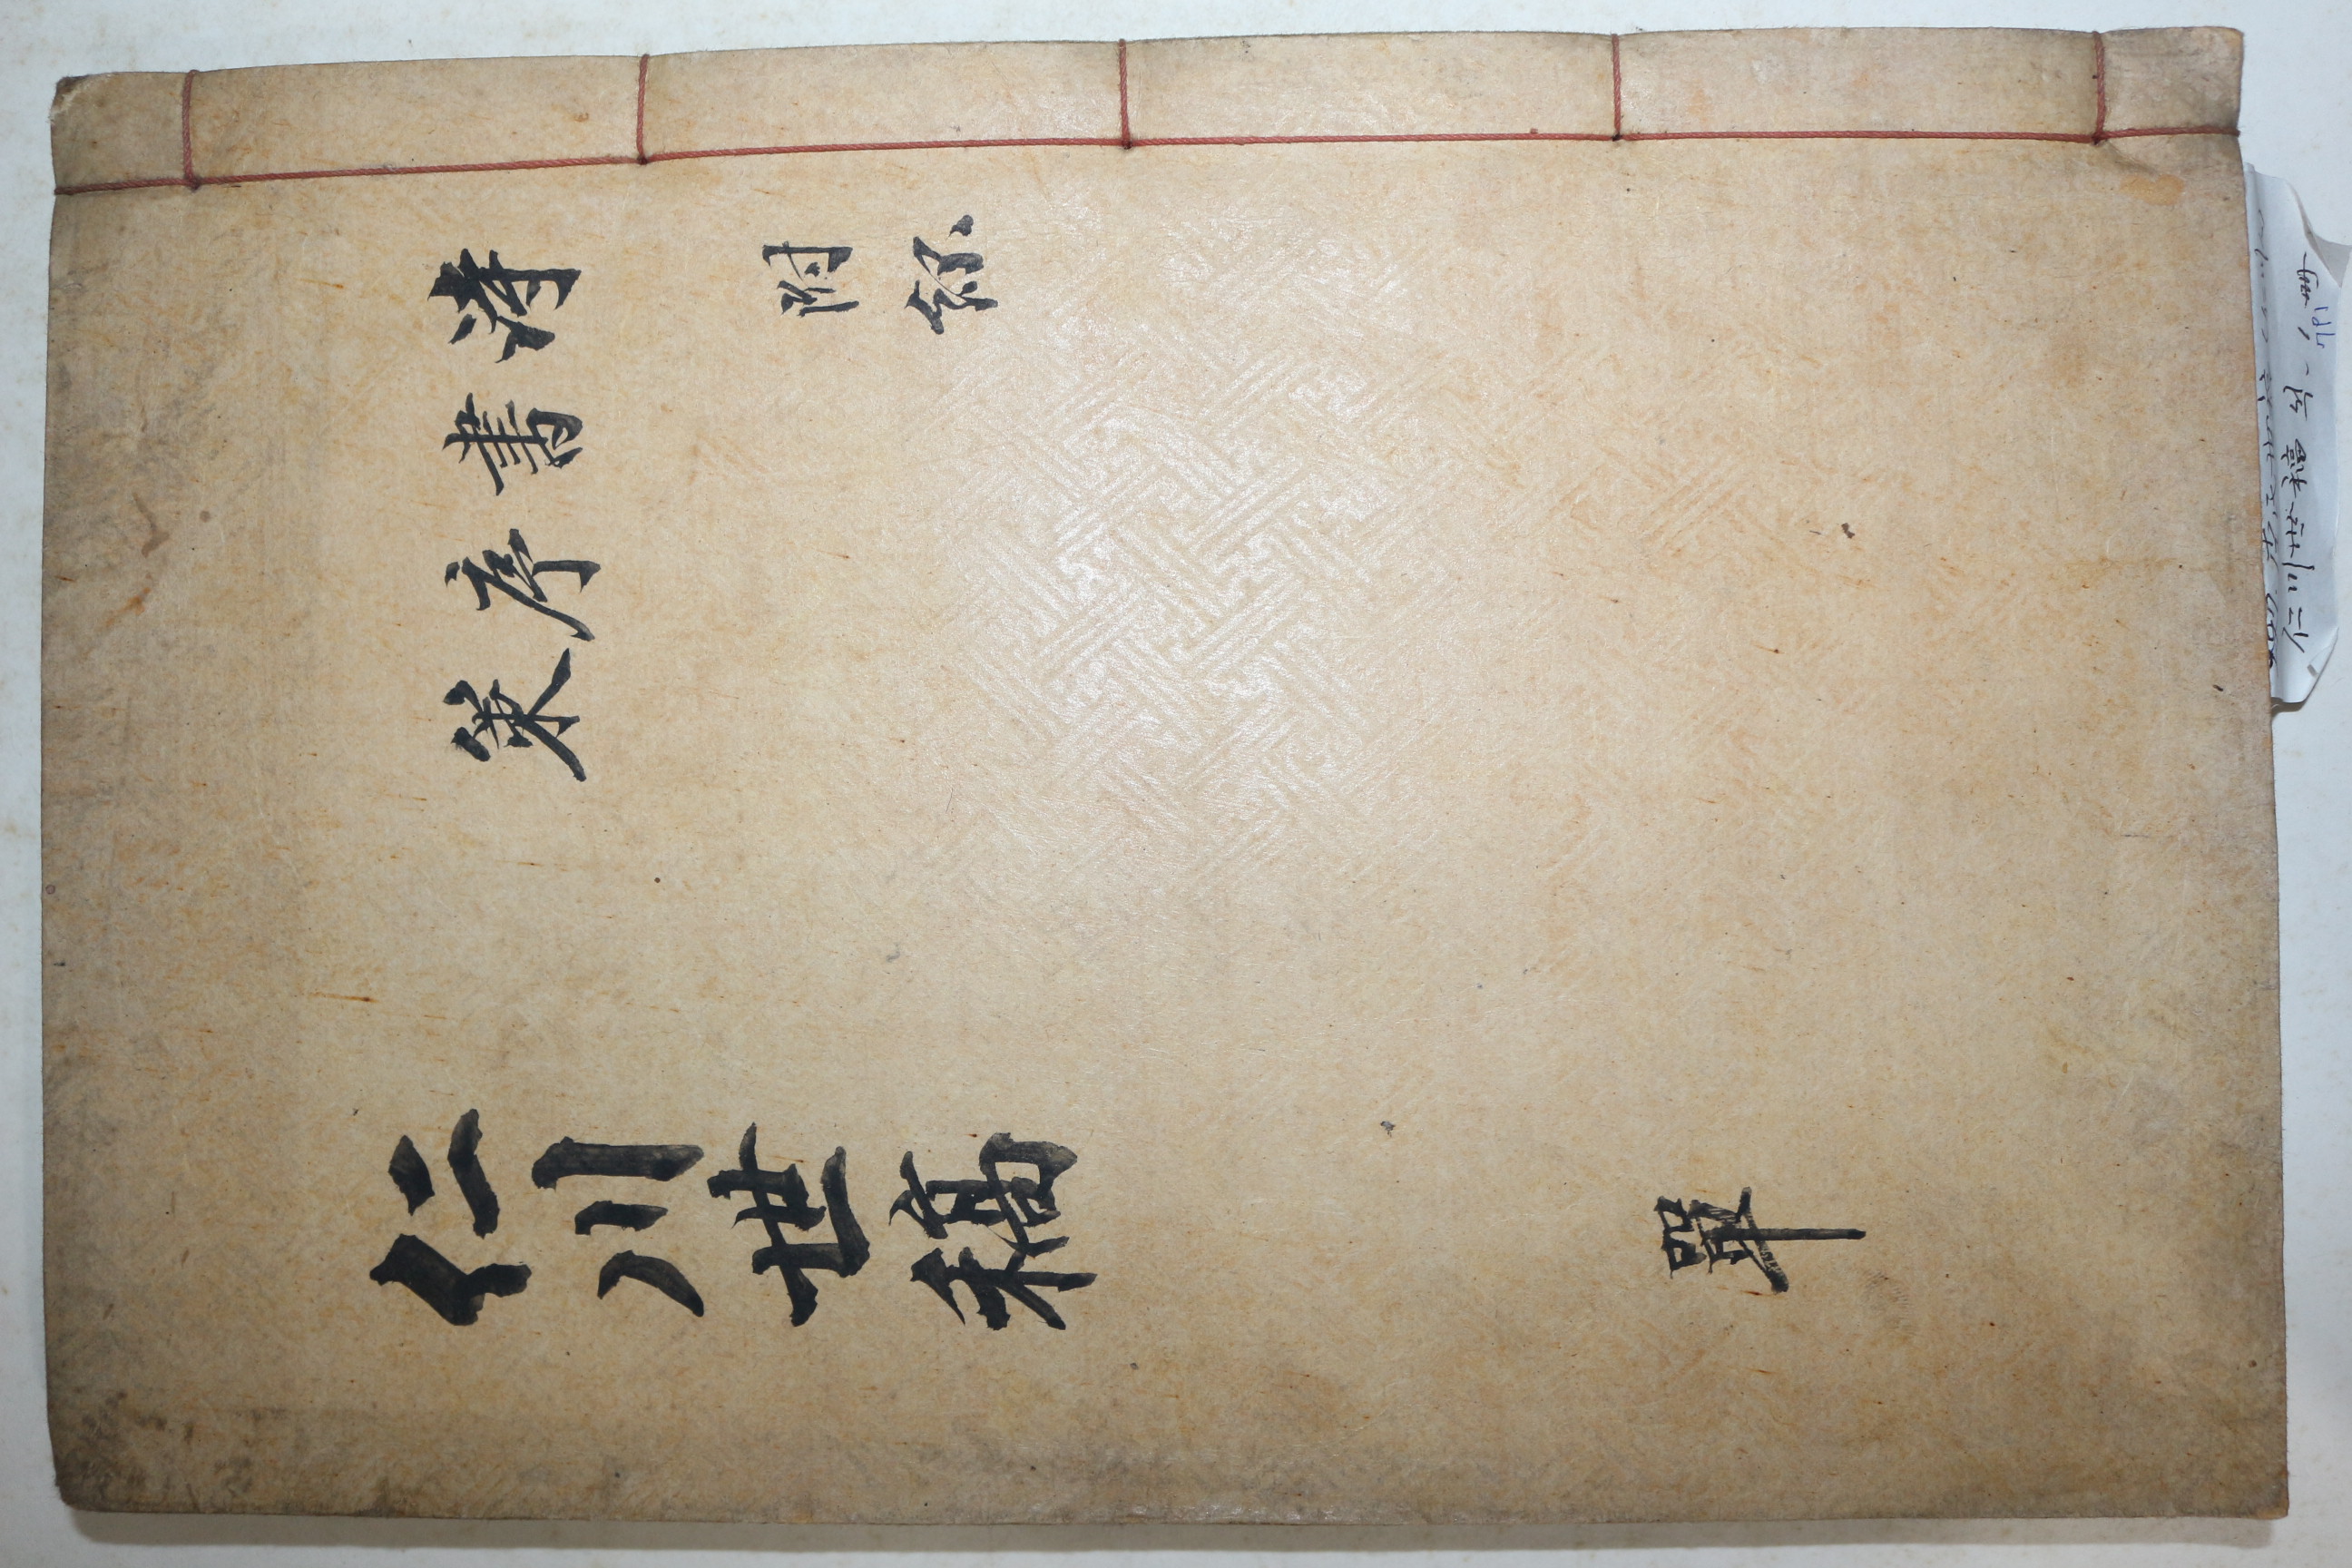 詩
書
序
策
附錄
仁川世稿
單
仁川世稿
冊